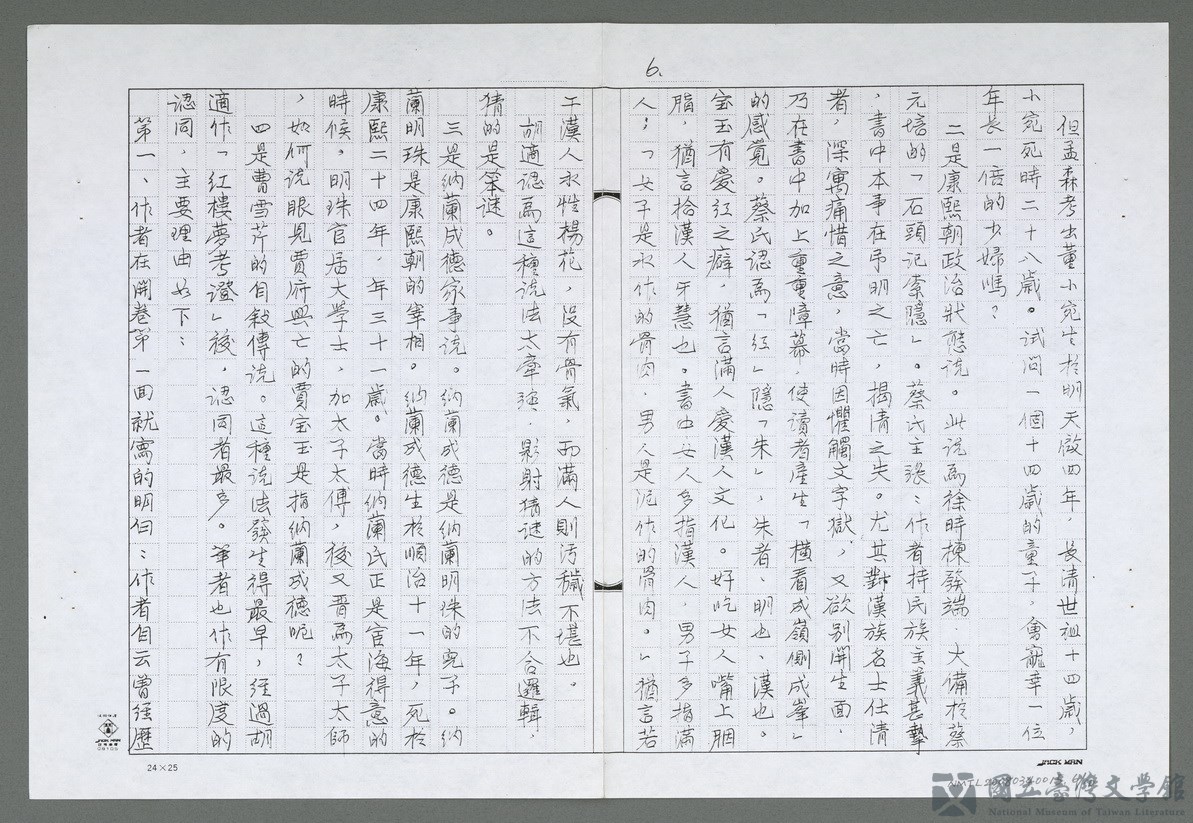 6.
但孟森考出董小宛生於明天啟四年，長清世祖十四歲，
小宛死時二十八歲。試問一個十四歲的童子，會寵幸一位
年長一倍的少婦嗎？
二是康熙朝政治狀態說。此說為徐時棟發端，大備於蔡
元培的「石頭記索隱」。蔡氏主張：作者持民族主義甚摯
，書中本事在弔明之亡，揭清之失。尤其對漢族名士仕清
者，深寓痛惜之意，當時因懼觸文字獄，又欲別開生面，
乃在書中加上重重障幕，使讀者產生「橫看成嶺側成峯」
的感覺。蔡氏認為「紅」隱「朱」，朱者、明也、漢也。
宝玉有愛紅之癖，猶言滿人愛漢人文化。好吃女人嘴上胭
脂，猶言拾漢人牙慧也。書中女人多指漢人，男子多指滿
人；「女子是水作的骨肉，男人是泥作的骨肉。」猶言若
干漢人水性楊花，沒有骨氣，而滿人則污穢不堪也。
胡適認為這種說法太牽強，影射猜谜的方法不合邏輯，
猜的是笨谜。
三是納蘭成德家事說。納蘭成德是納蘭明珠的兒子。納
蘭明珠是康熙朝的宰相。納蘭成德生於順治十一年，死於
康熙二十四年，年三十一歲。當時納蘭氏正是宦海得意的
時候。明珠官居大學士，加太子太傅，後又晋為太子太師
，如何說眼見賈府興亡的賈宝玉是指納蘭成德呢？
四是曹雪芹的自敍傳說。這種說法發生得最早，經過胡
適作「紅樓夢考證」後，認同者最多。筆者也作有限度的
認同，主要理由如下：
第一、作者在開卷第一面就寫的明白：作者自云曾經歷
24×25
JACK MAN
國立臺灣文學館
National Museum of Taiwan Literature